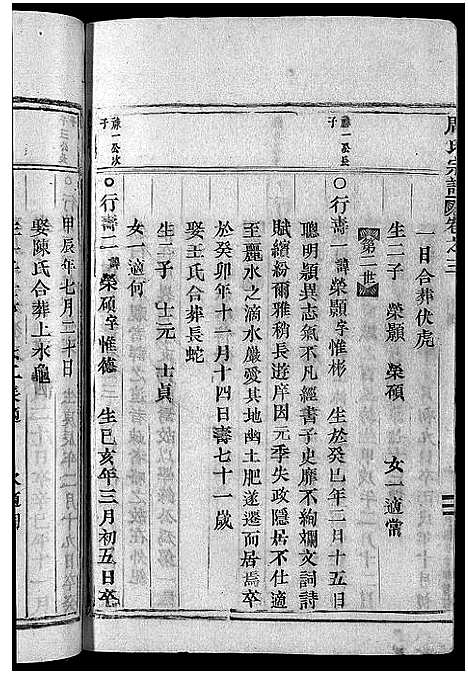 周氏宗譜 卷之三
一日合葬伏虎
生二子 榮顥 榮碩 女一適常
第二世
蘇一公長子
○行壽一諱榮顥字惟彬 生於癸巳年二月十五日
聰明穎異志氣不凡經書子史靡不絢斕文詞詩
賦繽紛爾雅稍長遊庠因元季失政隱居不仕適
至麗水之滴水嚴愛其地幽土肥遂遷而居焉卒
於癸卯年十一月十四日壽七十一歲
娶王氏合葬長蛇
生二子 士元 士貞
女一適何
蘇一公次子
○行壽二諱榮碩字惟德 生已亥年三月初五日卒
甲辰年七月二十日
娶陳氏合葬上水龜